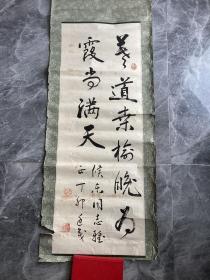 莫道桑榆晚为
霞尚满天
同志
正 丁卯